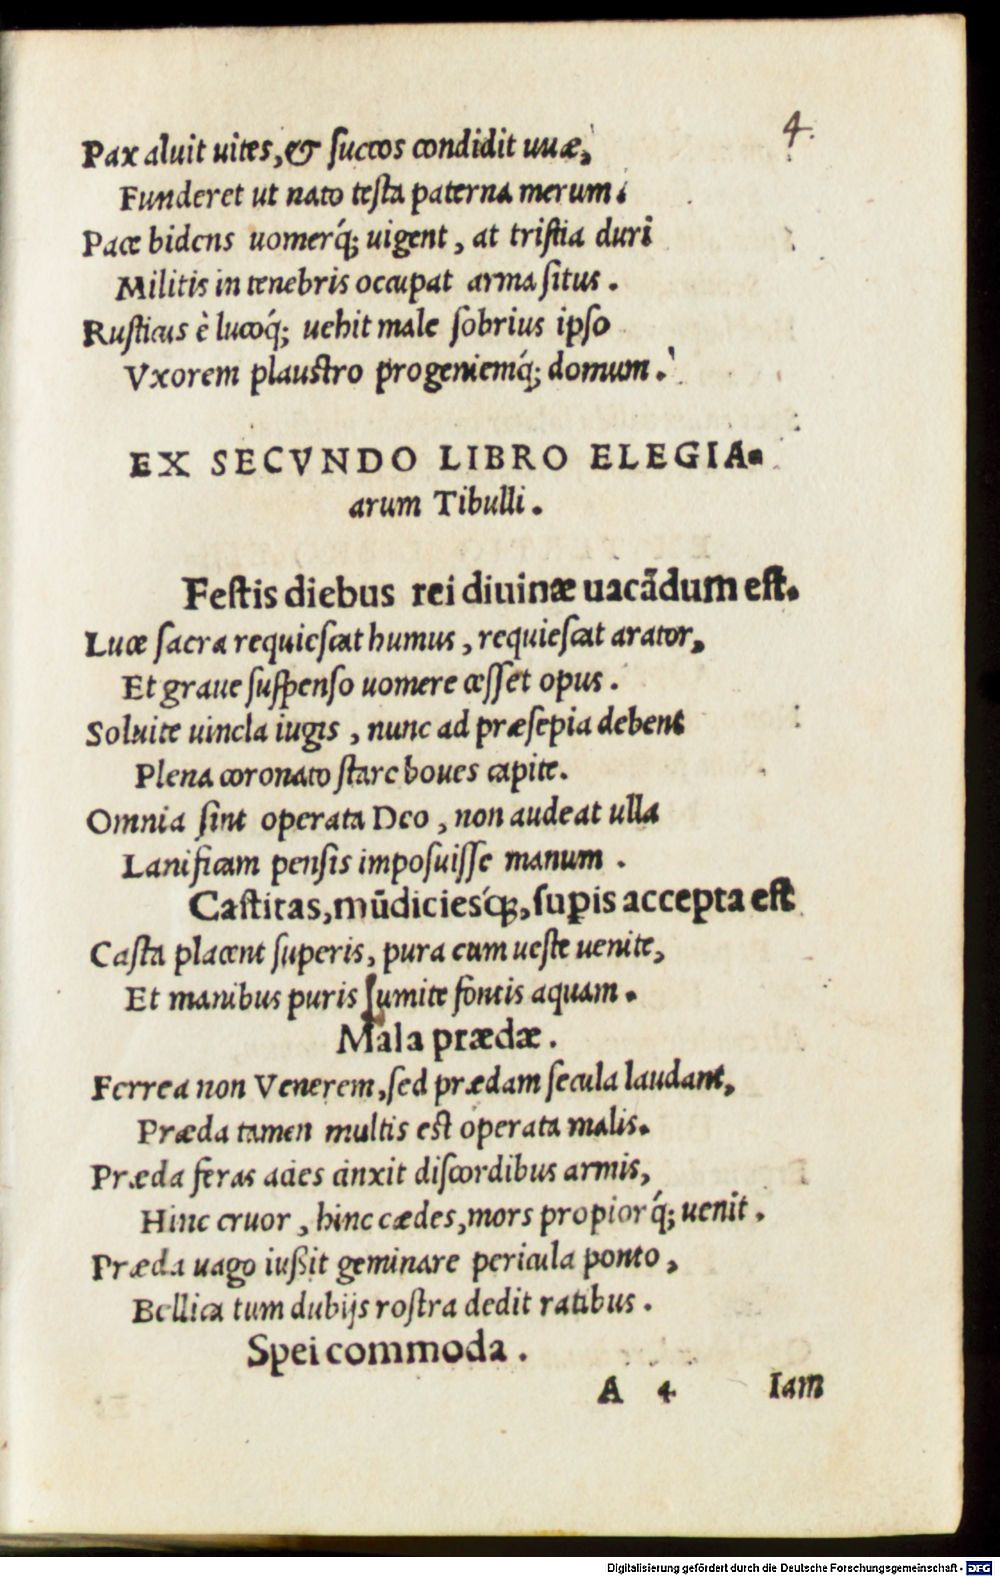 4.
Pax aluit uites, & succos condidit uuæ,
Funderet ut nato testa paterna merum:
Pace bidens uomerq́; uigent, at tristia duri
Militis in tenebris occupat arma situs.
Rusticus è lucoq́; uehit male sobrius ipso
Vxorem plaustro progeniemq́; domum.
EX SECVNDO LIBRO ELEGIA-
arum Tibulli.
Festis diebus rei diuinæ uacãdum est.
Luce sacra requiescat humus, requiescat arator,
Et graue suspenso uomere cesset opus.
Soluite uincla iugis, nunc ad præsepia debent
Plena coronato stare boues capite.
Omnia sint operata Deo, non audeat ulla
Lanificam pensis imposuisse manum.
Castitas, mũdiciesq́;, supis accepta est
Casta placent superis, pura cum ueste uenite,
Et manibus puris sumite fontis aquam.
Mala prædæ.
Ferrea non Venerem, sed prædam secula laudant,
Præda tamen multis est operata malis.
Præda feras acies cinxit discordibus armis,
Hinc cruor, hinc cædes, mors propiorq́; uenit.
Præda uago iußit geminare pericula ponto,
Bellica tum dubijs rostra dedit ratibus.
Spei commoda.
A 4 Iam
Digitalisierung gefördert durch die Deutsche Forschungsgemeinschaft - DFG